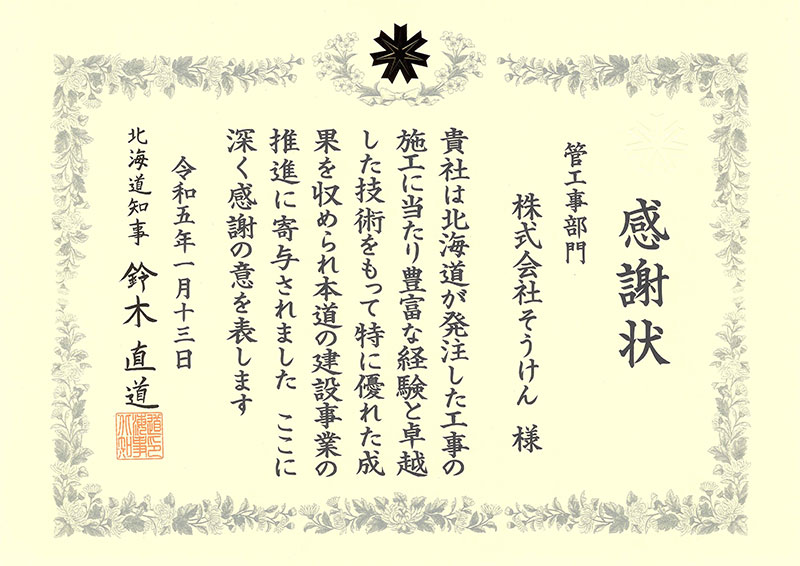 感謝状
管工事部門
株式会社そうけん 様
貴社は北海道が発注した工事の
施工に当たり豊富な経験と卓越
した技術をもって特に優れた成
果を収められ本道の建設事業の
推進に寄与されました ここに
深く感謝の意を表します
令和五年一月十三日
北海道知事 鈴木直道